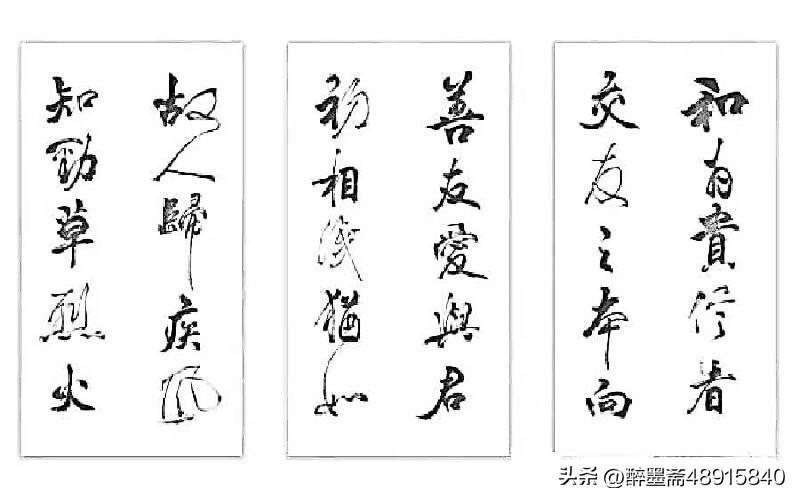 和为貴信者
交友之本向
善友愛與君
初相識猶如
故人歸疾風
知勁草烈火
头条 @醉墨斋48915840